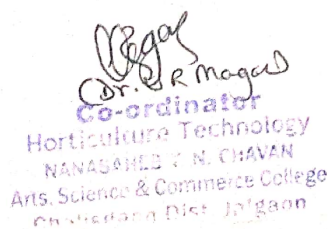 (Dr. R Magar)
Co-ordinator
Horticulture Technology
NANASAHEB Y. N. CHAVAN
Arts, Science & Commerce College
Chalisgaon Dist. Jalgaon